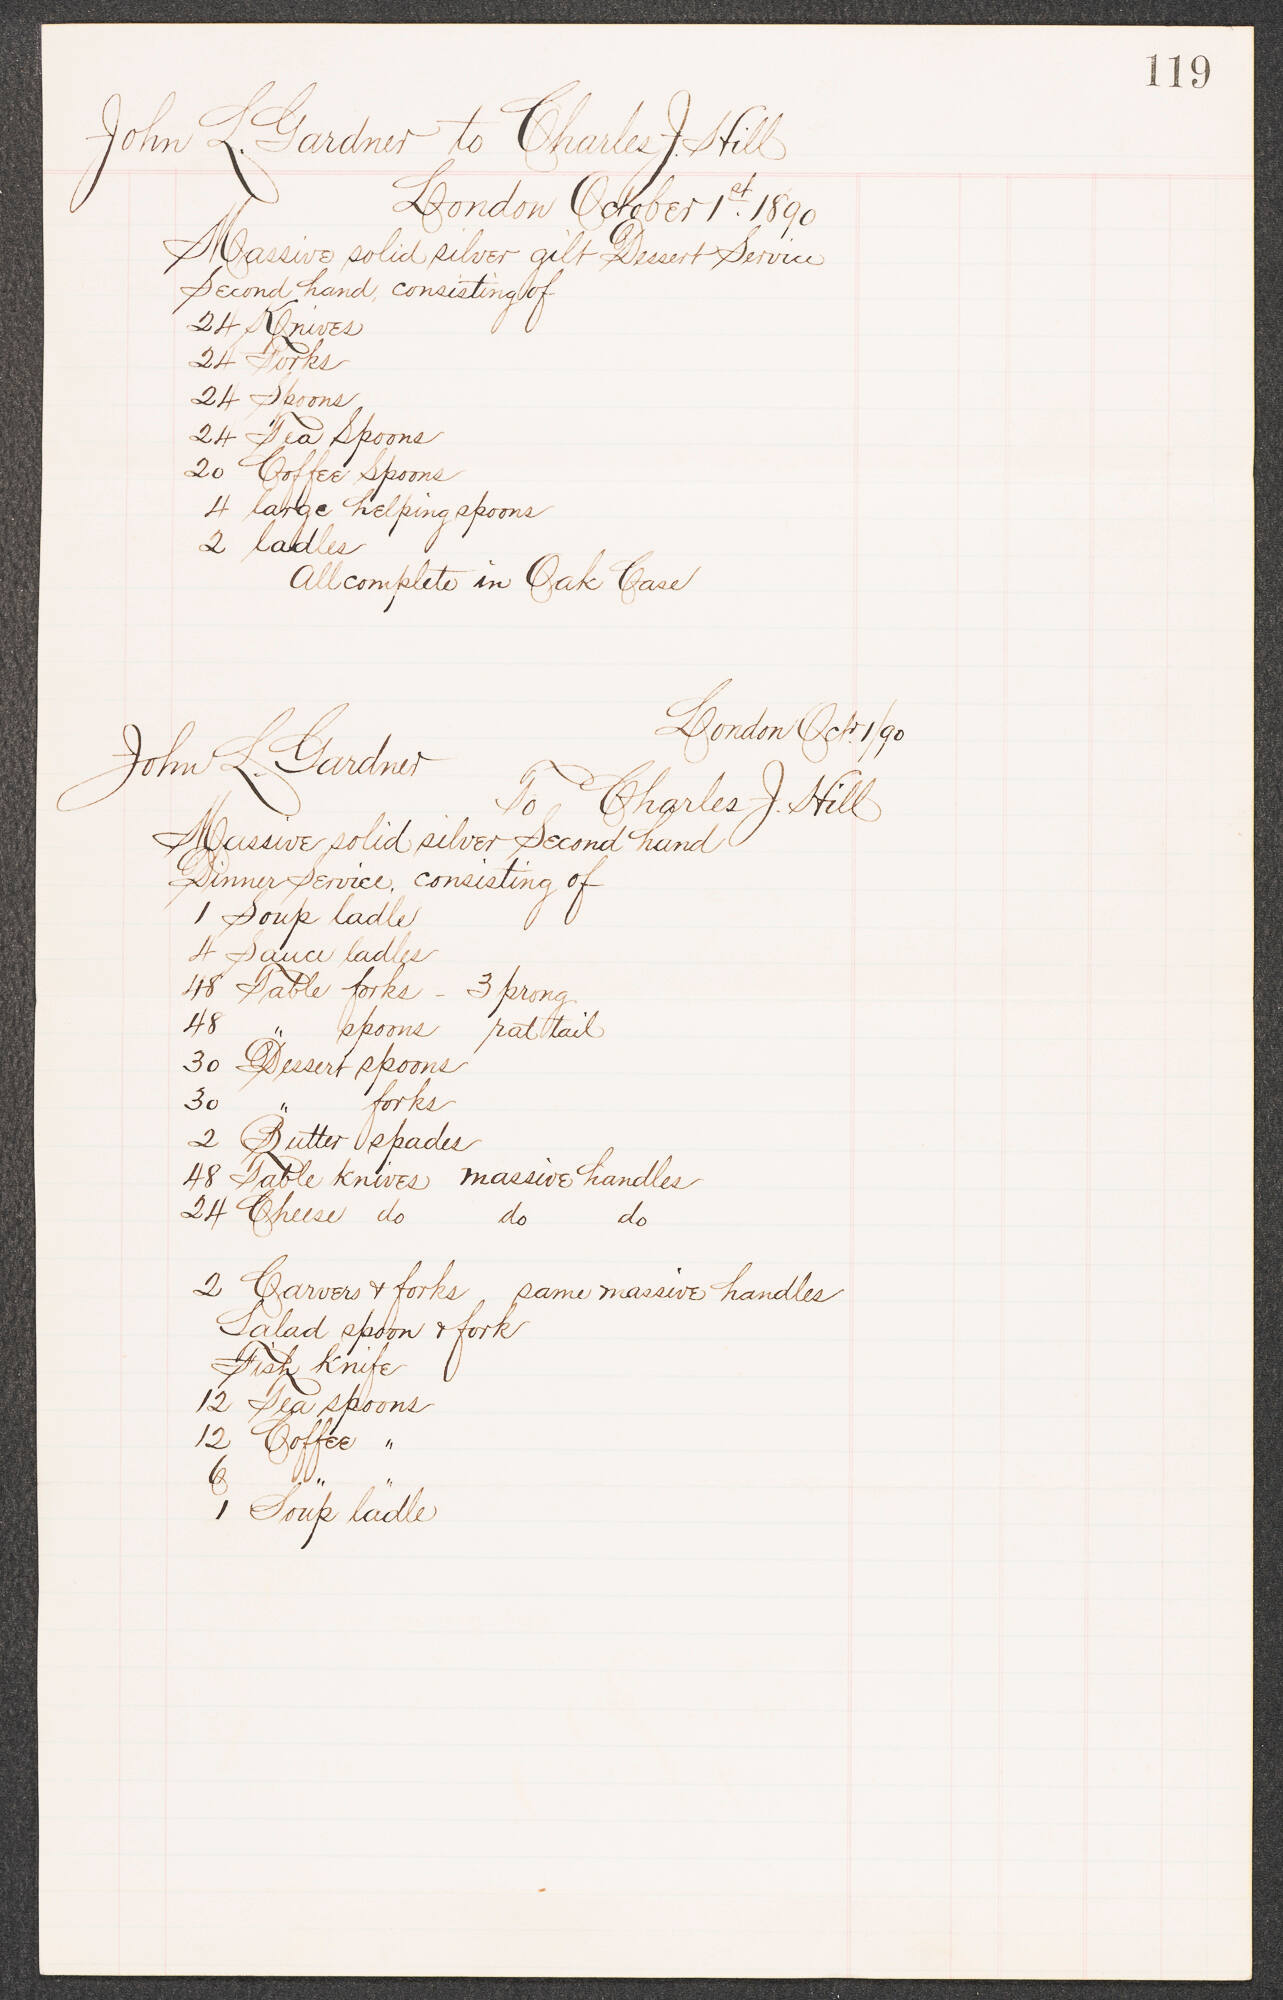 119
John L. Gardner to Charles J. Hill
London October 1st. 1890
Massive solid silver gilt Dessert Service
Second hand, consisting of
24 Knives
24 Forks
24 Spoons
24 Tea Spoons
20 Coffee Spoons
4 large helping spoons
2 ladles
All complete in Oak Case
London Oct. 1/90
John L. Gardner
To Charles J. Hill
Massive solid silver Second hand
Dinner Service, consisting of
1 Soup ladle
4 Sauce ladles
48 Table forks - 3 prong
48 " spoons rat tail
30 Dessert spoons
30 " forks
2 Butter spades
48 Table knives massive handles
24 Cheese do do do
2 Carvers & forks same massive handles
Salad spoon & fork
Fish knife
12 Tea spoons
12 Coffee "
6 " "
1 Soup ladle